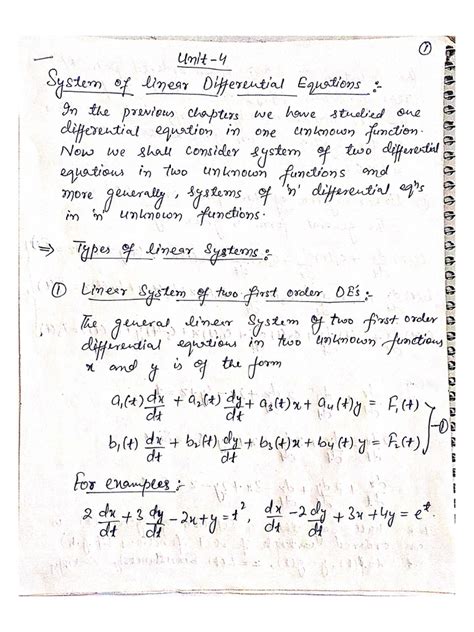 ①
Unit-4
System of linear Differential Equations :-
In the previous chapters we have studied one
differential equation in one unknown function.
Now we shall consider system of two differential
equations in two unknown functions and
more generally, systems of 'n' differential eqⁿs
in 'n' unknown functions.
⇒ Types of linear systems :-
① Linear System of two first order DE's :-
The general linear System of two first order
differential equations in two unknown functions
x and y is of the form
a₁(t) dx/dt + a₂(t) dy/dt + a₃(t)x + a₄(t)y = F₁(t)
b₁(t) dx/dt + b₂(t) dy/dt + b₃(t)x + b₄(t)y = F₂(t) —①
For examples :-
2 dx/dt + 3 dy/dt - 2x + y = t², dx/dt - 2 dy/dt + 3x + 4y = eᵗ.